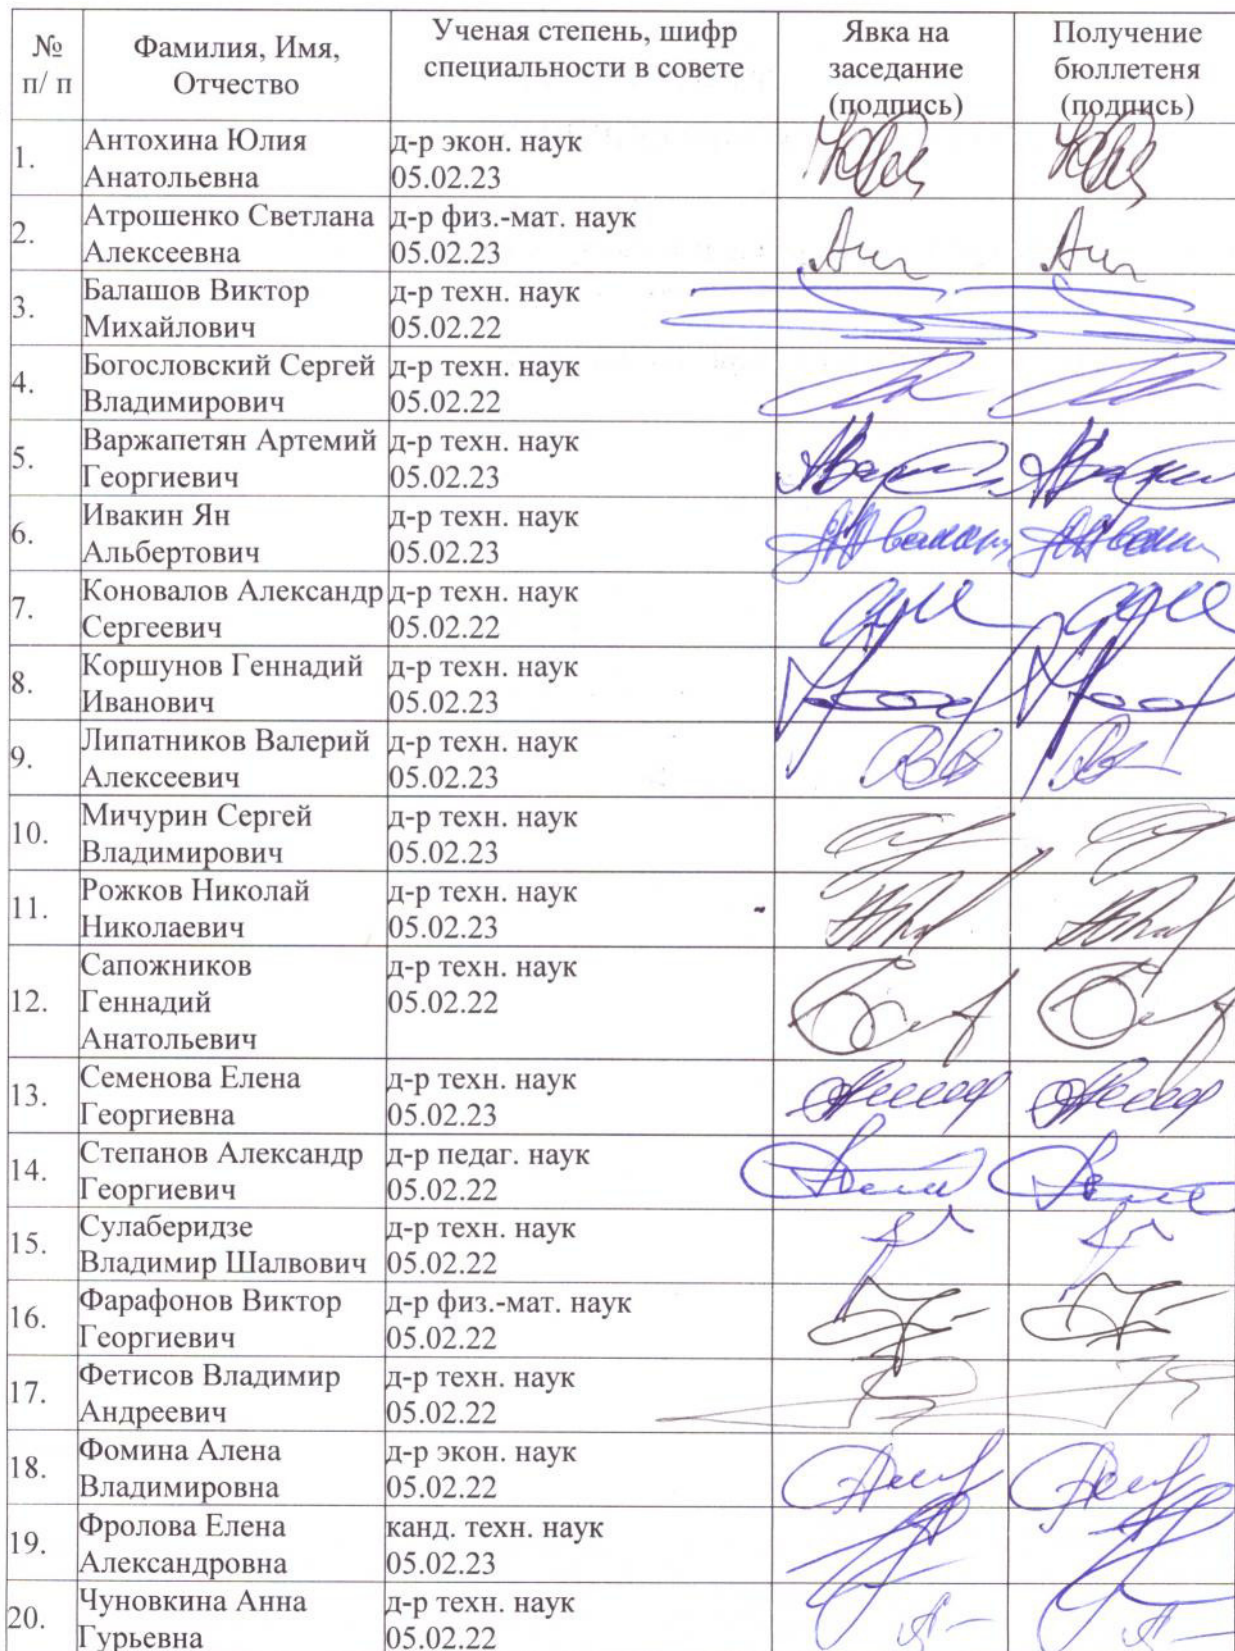 №
п/ п
Фамилия, Имя,
Отчество
Ученая степень, шифр
специальности в совете
Явка на
заседание
(подпись)
Получение
бюллетеня
(подпись)
1.
Антохина Юлия
Анатольевна
д-р экон. наук
05.02.23
2.
Атрошенко Светлана
Алексеевна
д-р физ.-мат. наук
05.02.23
3.
Балашов Виктор
Михайлович
д-р техн. наук
05.02.22
4.
Богословский Сергей
Владимирович
д-р техн. наук
05.02.22
5.
Варжапетян Артемий
Георгиевич
д-р техн. наук
05.02.23
6.
Ивакин Ян
Альбертович
д-р техн. наук
05.02.23
7.
Коновалов Александр
Сергеевич
д-р техн. наук
05.02.22
8.
Коршунов Геннадий
Иванович
д-р техн. наук
05.02.23
9.
Липатников Валерий
Алексеевич
д-р техн. наук
05.02.23
10.
Мичурин Сергей
Владимирович
д-р техн. наук
05.02.23
11.
Рожков Николай
Николаевич
д-р техн. наук
05.02.23
12.
Сапожников
Геннадий
Анатольевич
д-р техн. наук
05.02.22
13.
Семенова Елена
Георгиевна
д-р техн. наук
05.02.23
14.
Степанов Александр
Георгиевич
д-р педаг. наук
05.02.22
15.
Сулаберидзе
Владимир Шалвович
д-р техн. наук
05.02.22
16.
Фарафонов Виктор
Георгиевич
д-р физ.-мат. наук
05.02.22
17.
Фетисов Владимир
Андреевич
д-р техн. наук
05.02.22
18.
Фомина Алена
Владимировна
д-р экон. наук
05.02.22
19.
Фролова Елена
Александровна
канд. техн. наук
05.02.23
20.
Чуновкина Анна
Гурьевна
д-р техн. наук
05.02.22